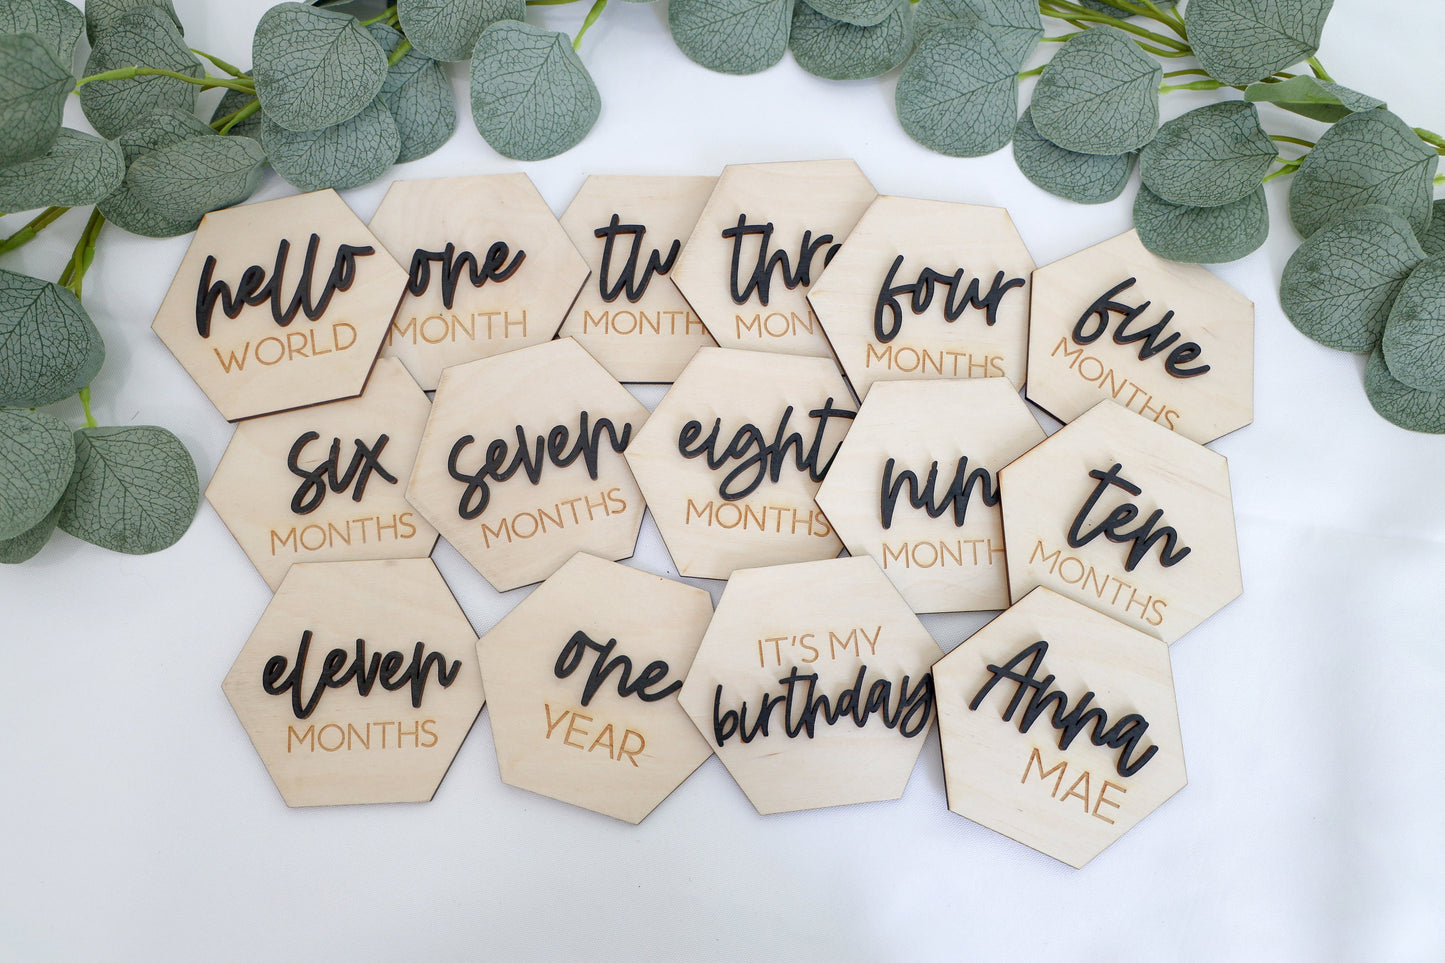 hello
WORLD
one
MONTH
tw
MONTH
thre
MON
four
MONTHS
five
MONTHS
six
MONTHS
seven
MONTHS
eight
MONTHS
nin
MONTH
ten
MONTHS
eleven
MONTHS
one
YEAR
IT'S MY
birthday
Anna
MAE